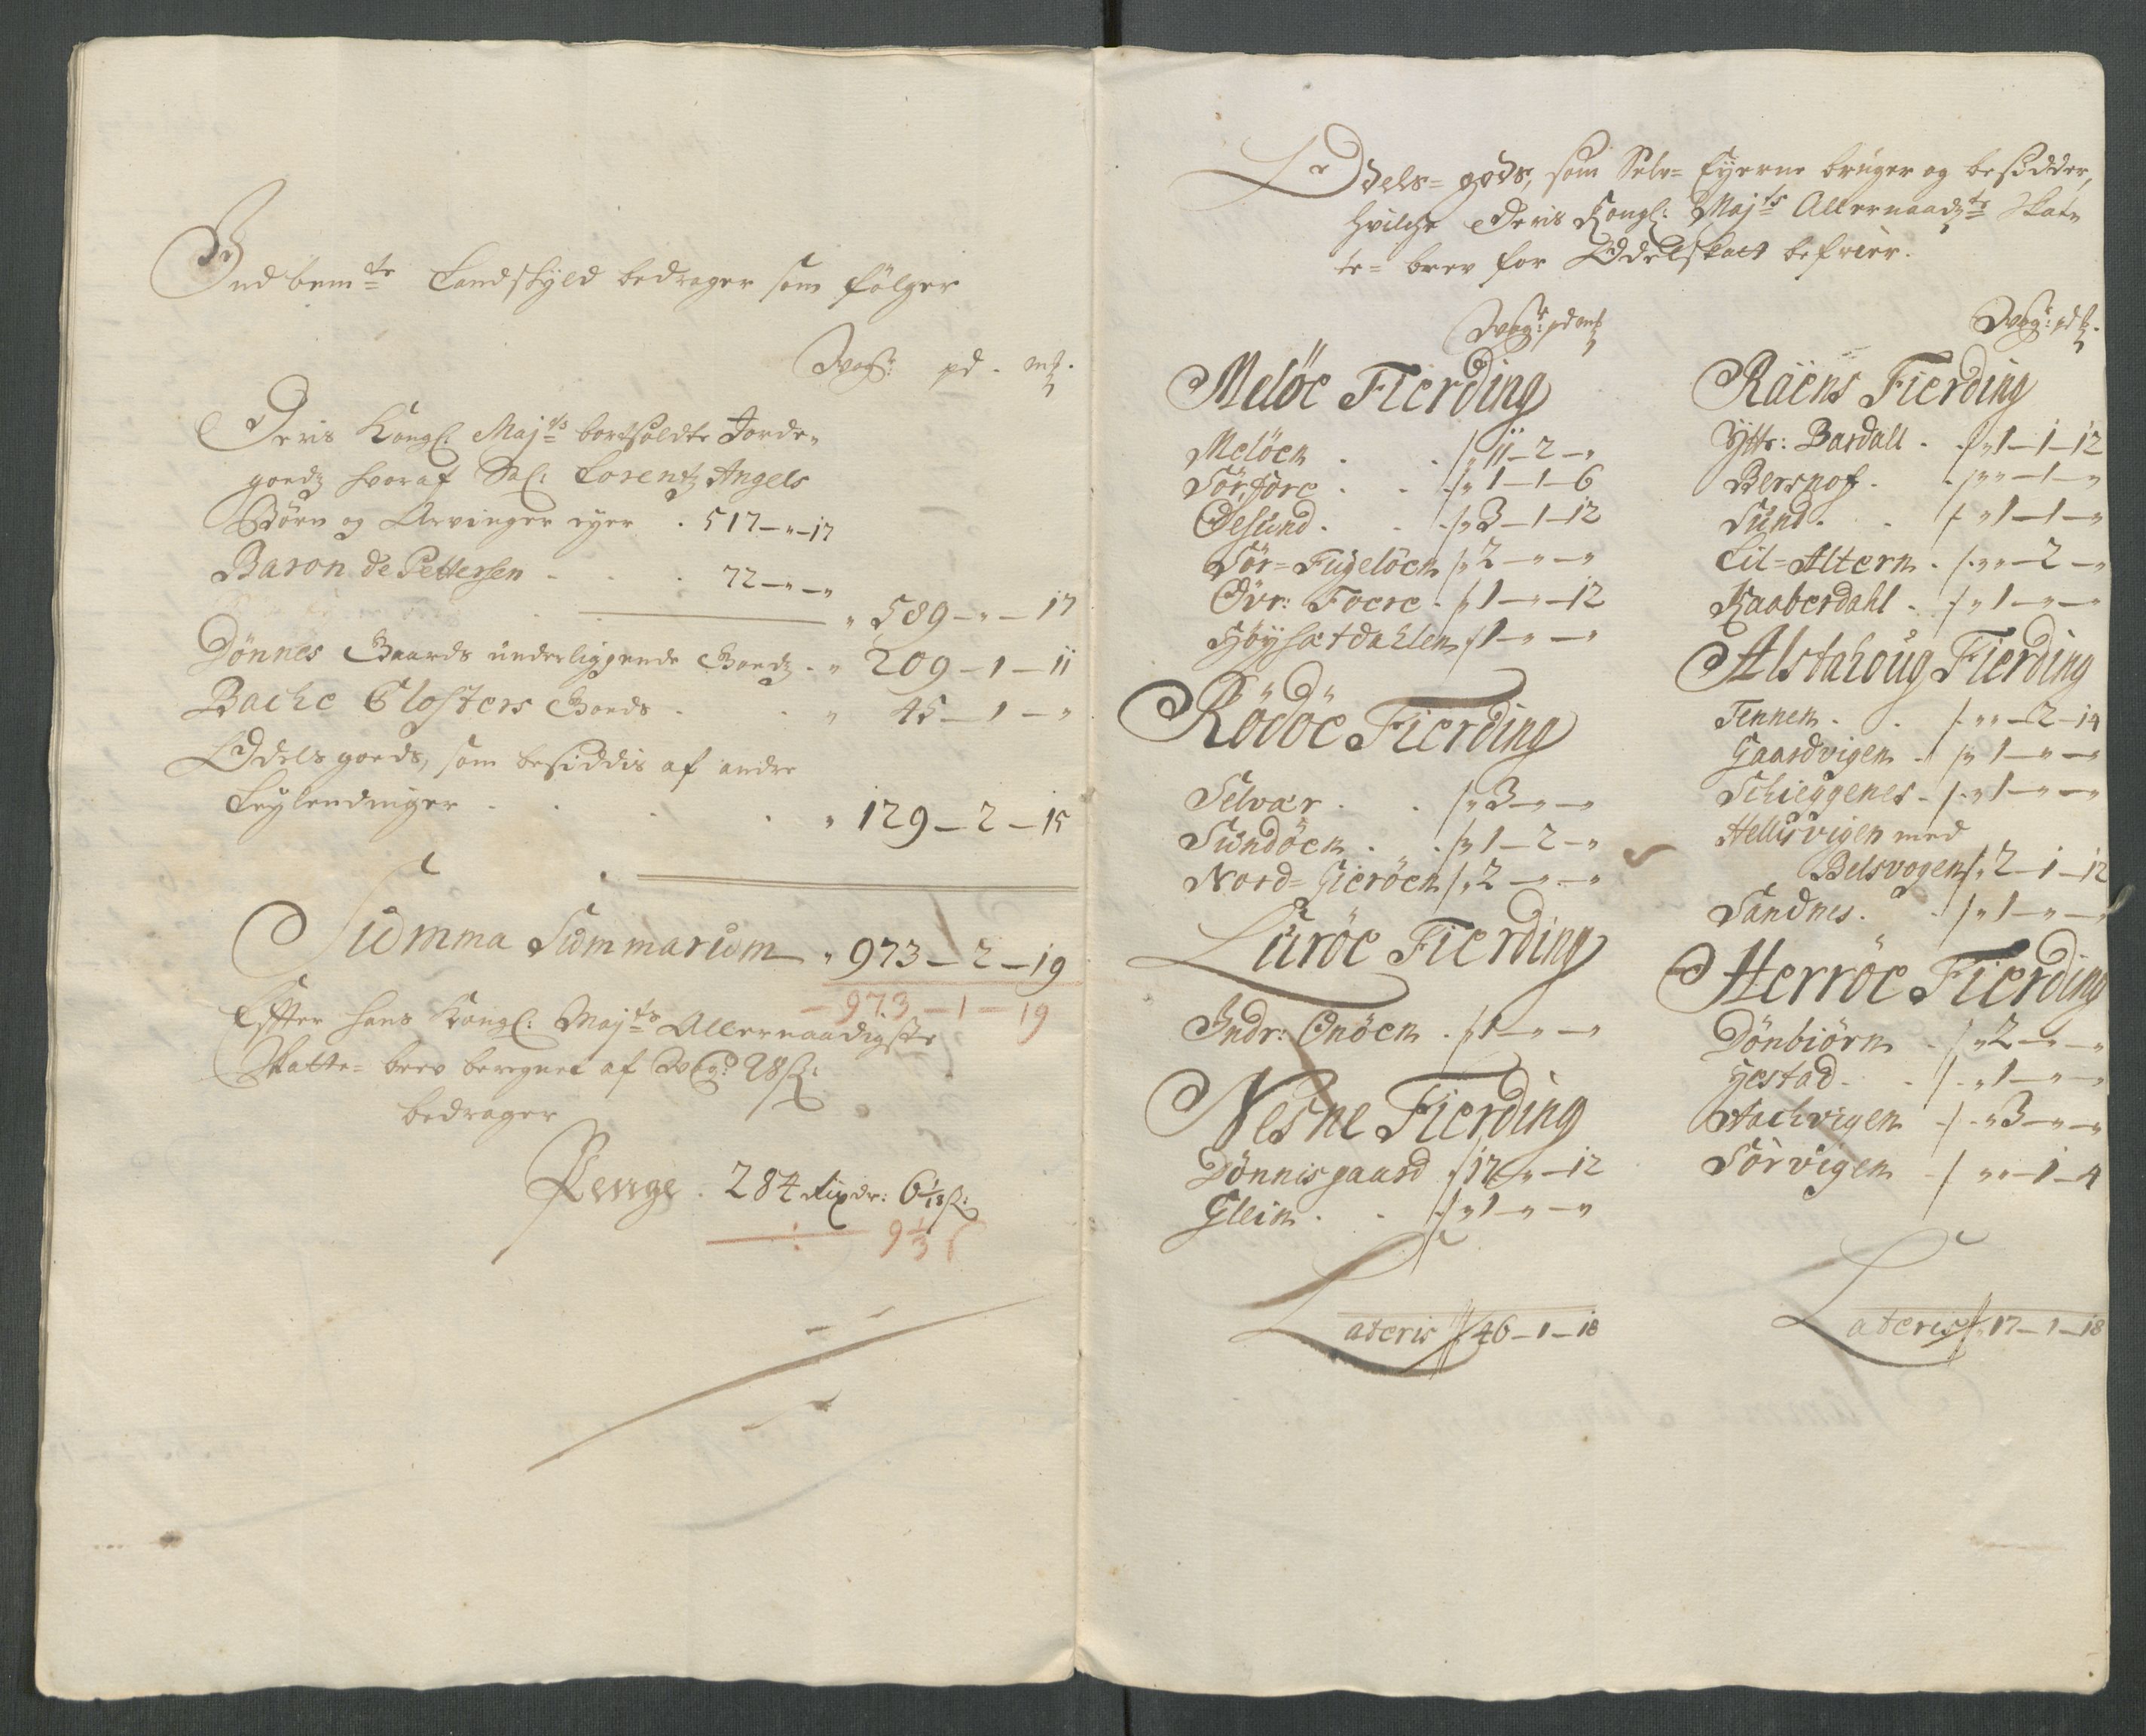 Indbemte Landskyld bedrager som følger
Wog: pd. mk.
Deris Kongl: Majts bortsoldte Jorde-
goedz hvoraf Sal: Lorentz Angels
Börn og Arvinger eyer . 517-"-17
Baron de Pettersen - . . 72-"-"
" 589-"-17
Dönnes Gaards underliggende Goedz . " 209-1-11
Bache Closters Goeds . . " 45-1-"
Odels goeds, som besiddis af andre
Leylendinger . . . . " 129-2-15
Summa Summarum " 973-2-19
-973-1-19
Effter hans Kongl: Majts Allernaadigste
Skatte= brev beregnet af Wog: 28 s:
bedrager
Penge . 284 Rixdr: 6 1/18 s:
÷ 9 1/3 s
Odels= gods, som Selv= Eyerne bruger og besidder,
hvilche Deris Kongl: Majts Allernaadte Skat-
te= brev for Odelskatt befrier.
Wog: pd mk
Melöe Fierding
Melöen . . " 11-2-"
Sör,före . . " 1-1-6
Öesund . . " 3-1-12
Sör=Fugelöen " 2-"-"
Övr: Foere . " 1-"-12
Höysætdahlen 1-"-"
Rödöe Fierding
Selvær . . " 3-"-"
Sundöen . . " 1-2-"
Nord=Gieröen " 2-"-"
Luröe Fierding
Indr: Onöen . " 1-"-"
Nesne Fierding
Dönnisgaard " 17-"-12
Glein . . " 1-"-"
Lateris 46-1-18
Wog: pd mk.
Raens Fierding
Yttr: Bardall . . " 1-1-12
Bersnof . . " "-1-"
Sund . . " 1-1-"
Lil=Altern . . " "-2-"
Raaberdahl . " 1-"-"
Alstahoug Fierding
Tennen . . " "-2-14
Gaardvigen . " 1-"-"
Schieggenes . " 1-"-"
Hellisvigen med
Belsvogen " 2-1-12
Sandnes . . " 1-"-"
Herröe Fierding
Dönbiörn . " 2-"-"
Gestad . . " 1-"-"
Stochvigen . " 3-"-"
Sörvigen . " "-1-4
Lateris " 17-1-18